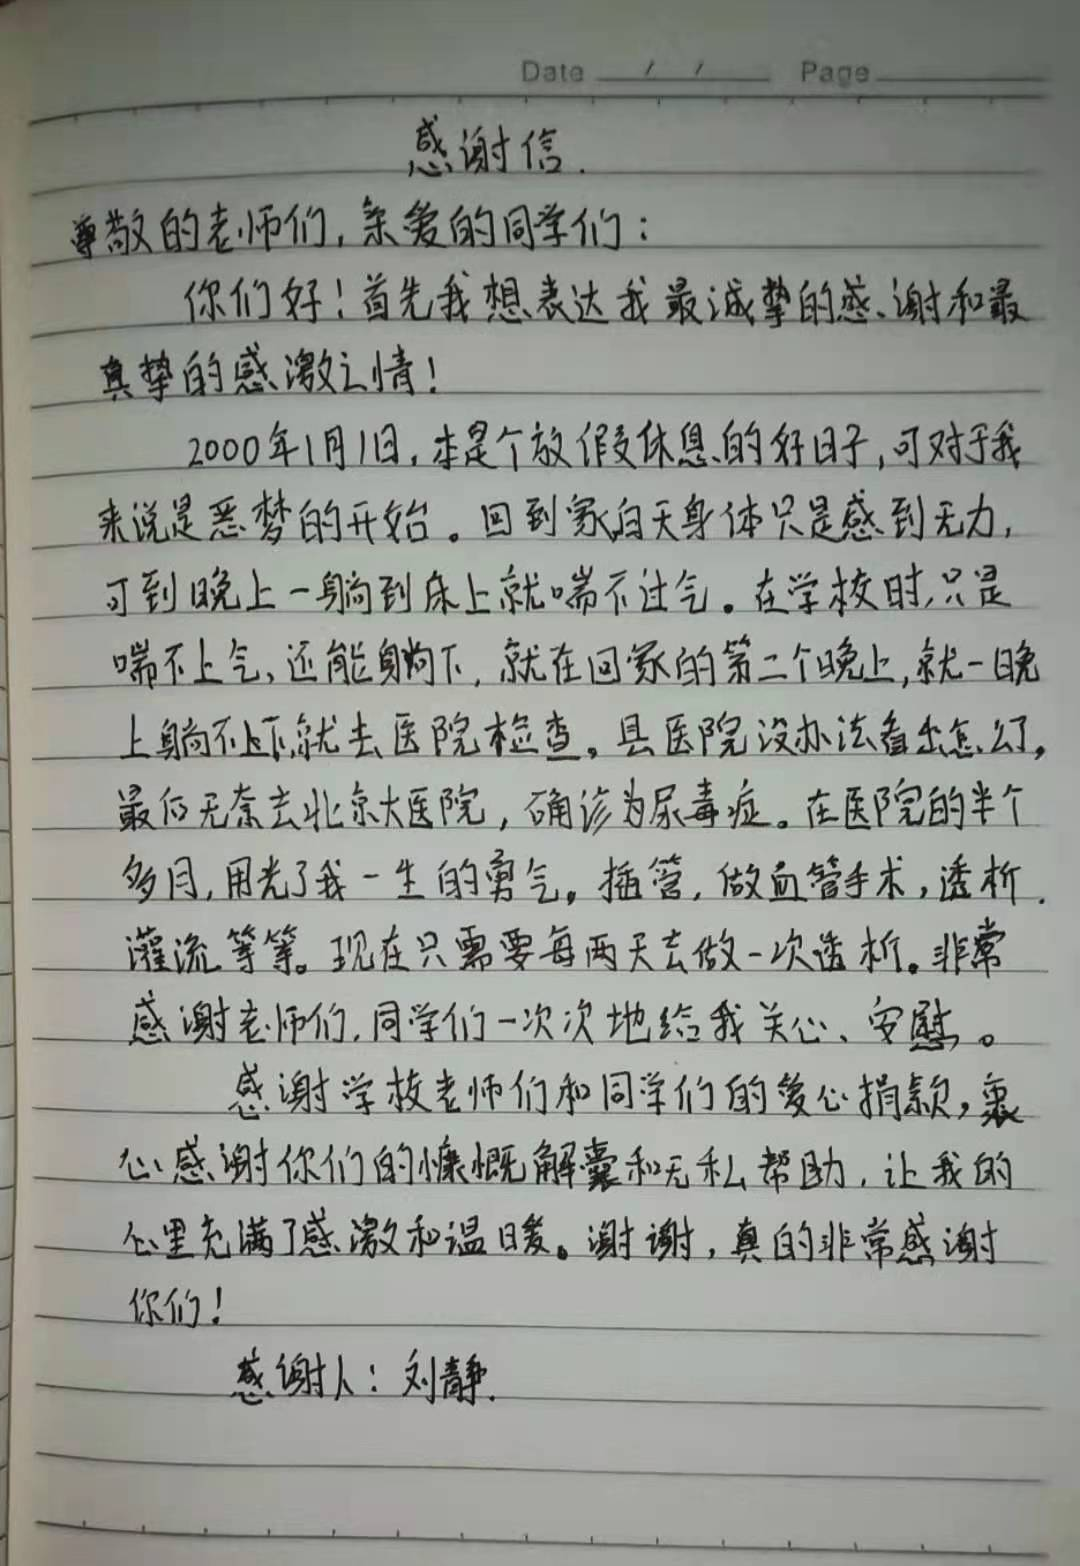 Date / / Page
感谢信.
尊敬的老师们,亲爱的同学们:
你们好!首先我想表达我最诚挚的感谢和最
真挚的感激之情!
2000年1月1日,本是个放假休息的好日子,可对于我
来说是恶梦的开始。回到家,白天身体只是感到无力,
可到晚上一躺到床上就喘不过气。在学校时,只是
喘不上气,还能躺下,就在回家的第二个晚上,就一晚
上躺不下,就去医院检查。县医院没办法看出怎么了,
最后无奈去北京大医院,确诊为尿毒症。在医院的半个
多月,用光了我一生的勇气。插管,做血管手术,透析.
灌流等等。现在只需要每两天去做一次透析。非常
感谢老师们,同学们一次次地给我关心、安慰。
感谢学校老师们和同学们的爱心捐款,衷
心感谢你们的慷慨解囊和无私帮助,让我的
心里充满了感激和温暖。谢谢,真的非常感谢
你们!
感谢人:刘静.